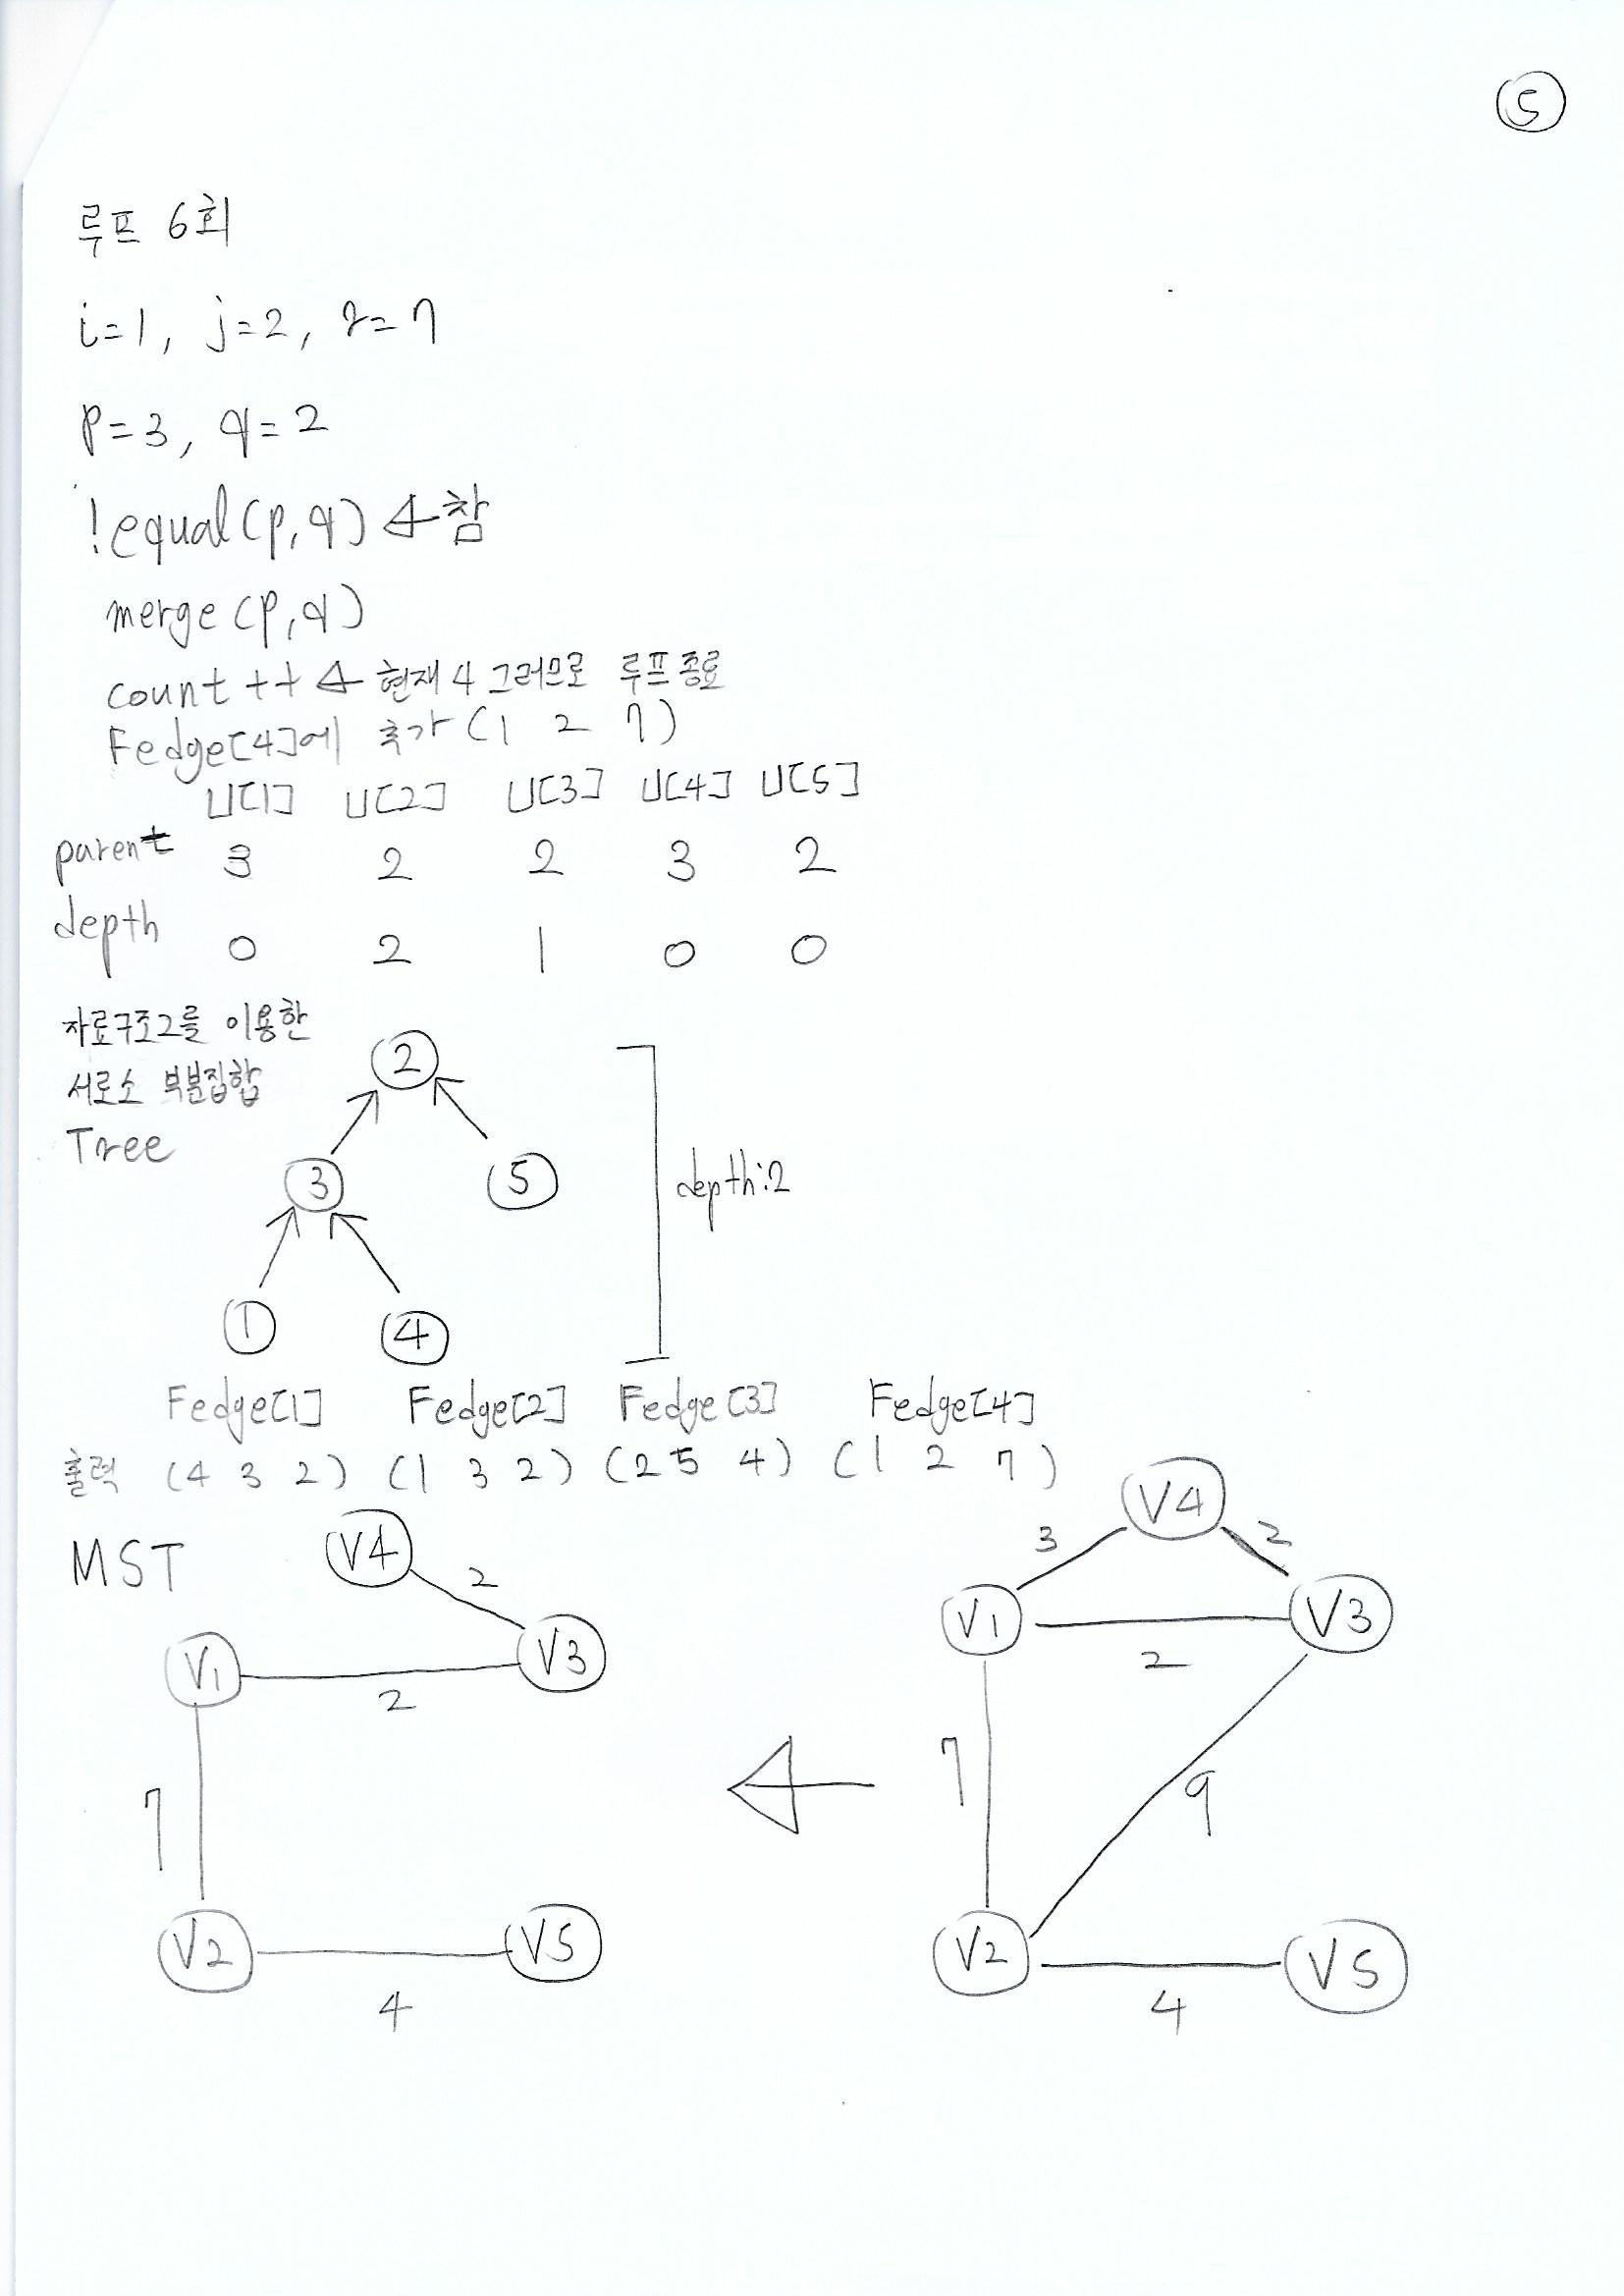 5
루프 6회
i=1, j=2, z=7
p=3, q=2
!equal(p,q) ← 참
merge(p,q)
count++ ← 현재 4 그러므로 루프 종료
Fedge[4]에 추가 (1 2 7)
U[1] U[2] U[3] U[4] U[5]
parent 3 2 2 3 2
depth 0 2 1 0 0
자료구조2를 이용한
서로소 부분집합
Tree
2
3 5
depth:2
1 4
Fedge[1] Fedge[2] Fedge[3] Fedge[4]
출력 (4 3 2) (1 3 2) (2 5 4) (1 2 7)
MST
V4
2
V1 V3
2
7
V2 V5
4
V4
3 2
V1 V3
2
7 9
V2 V5
4